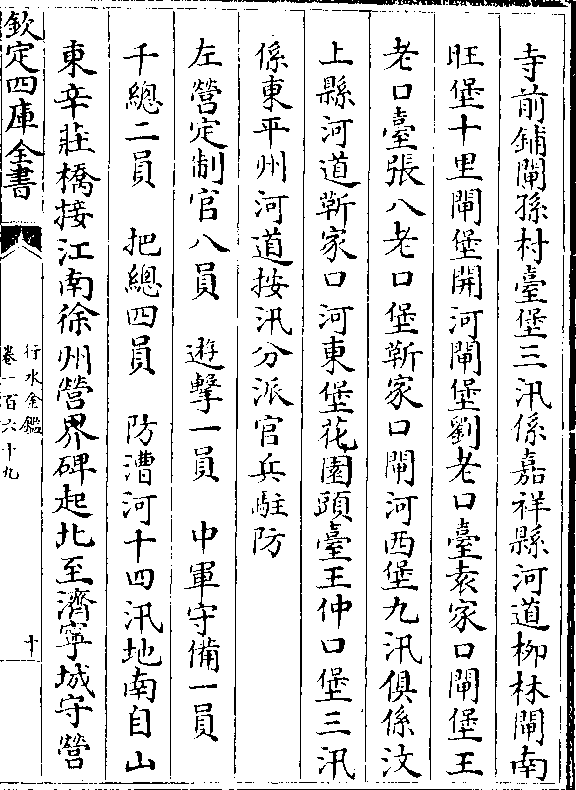 寺前鋪閘孫村臺堡三汛係嘉祥縣河道柳林閘南
旺堡十里閘堡開河閘堡劉老口臺袁家口閘堡王
老口臺張八老口堡靳家口閘河西堡九汛俱係汶
上縣河道靳家口河東堡花園頭臺王仲口堡三汛
係東平州河道按汛分派官兵駐防
左營定制官八員　遊擊一員　中軍守備一員
千總二員　把總四員　防漕河十四汛地南自山
東辛莊橋接江南徐州營界碑起北至濟寧城守營
欽定四庫全書
行水金鑑
卷一百六十九
十